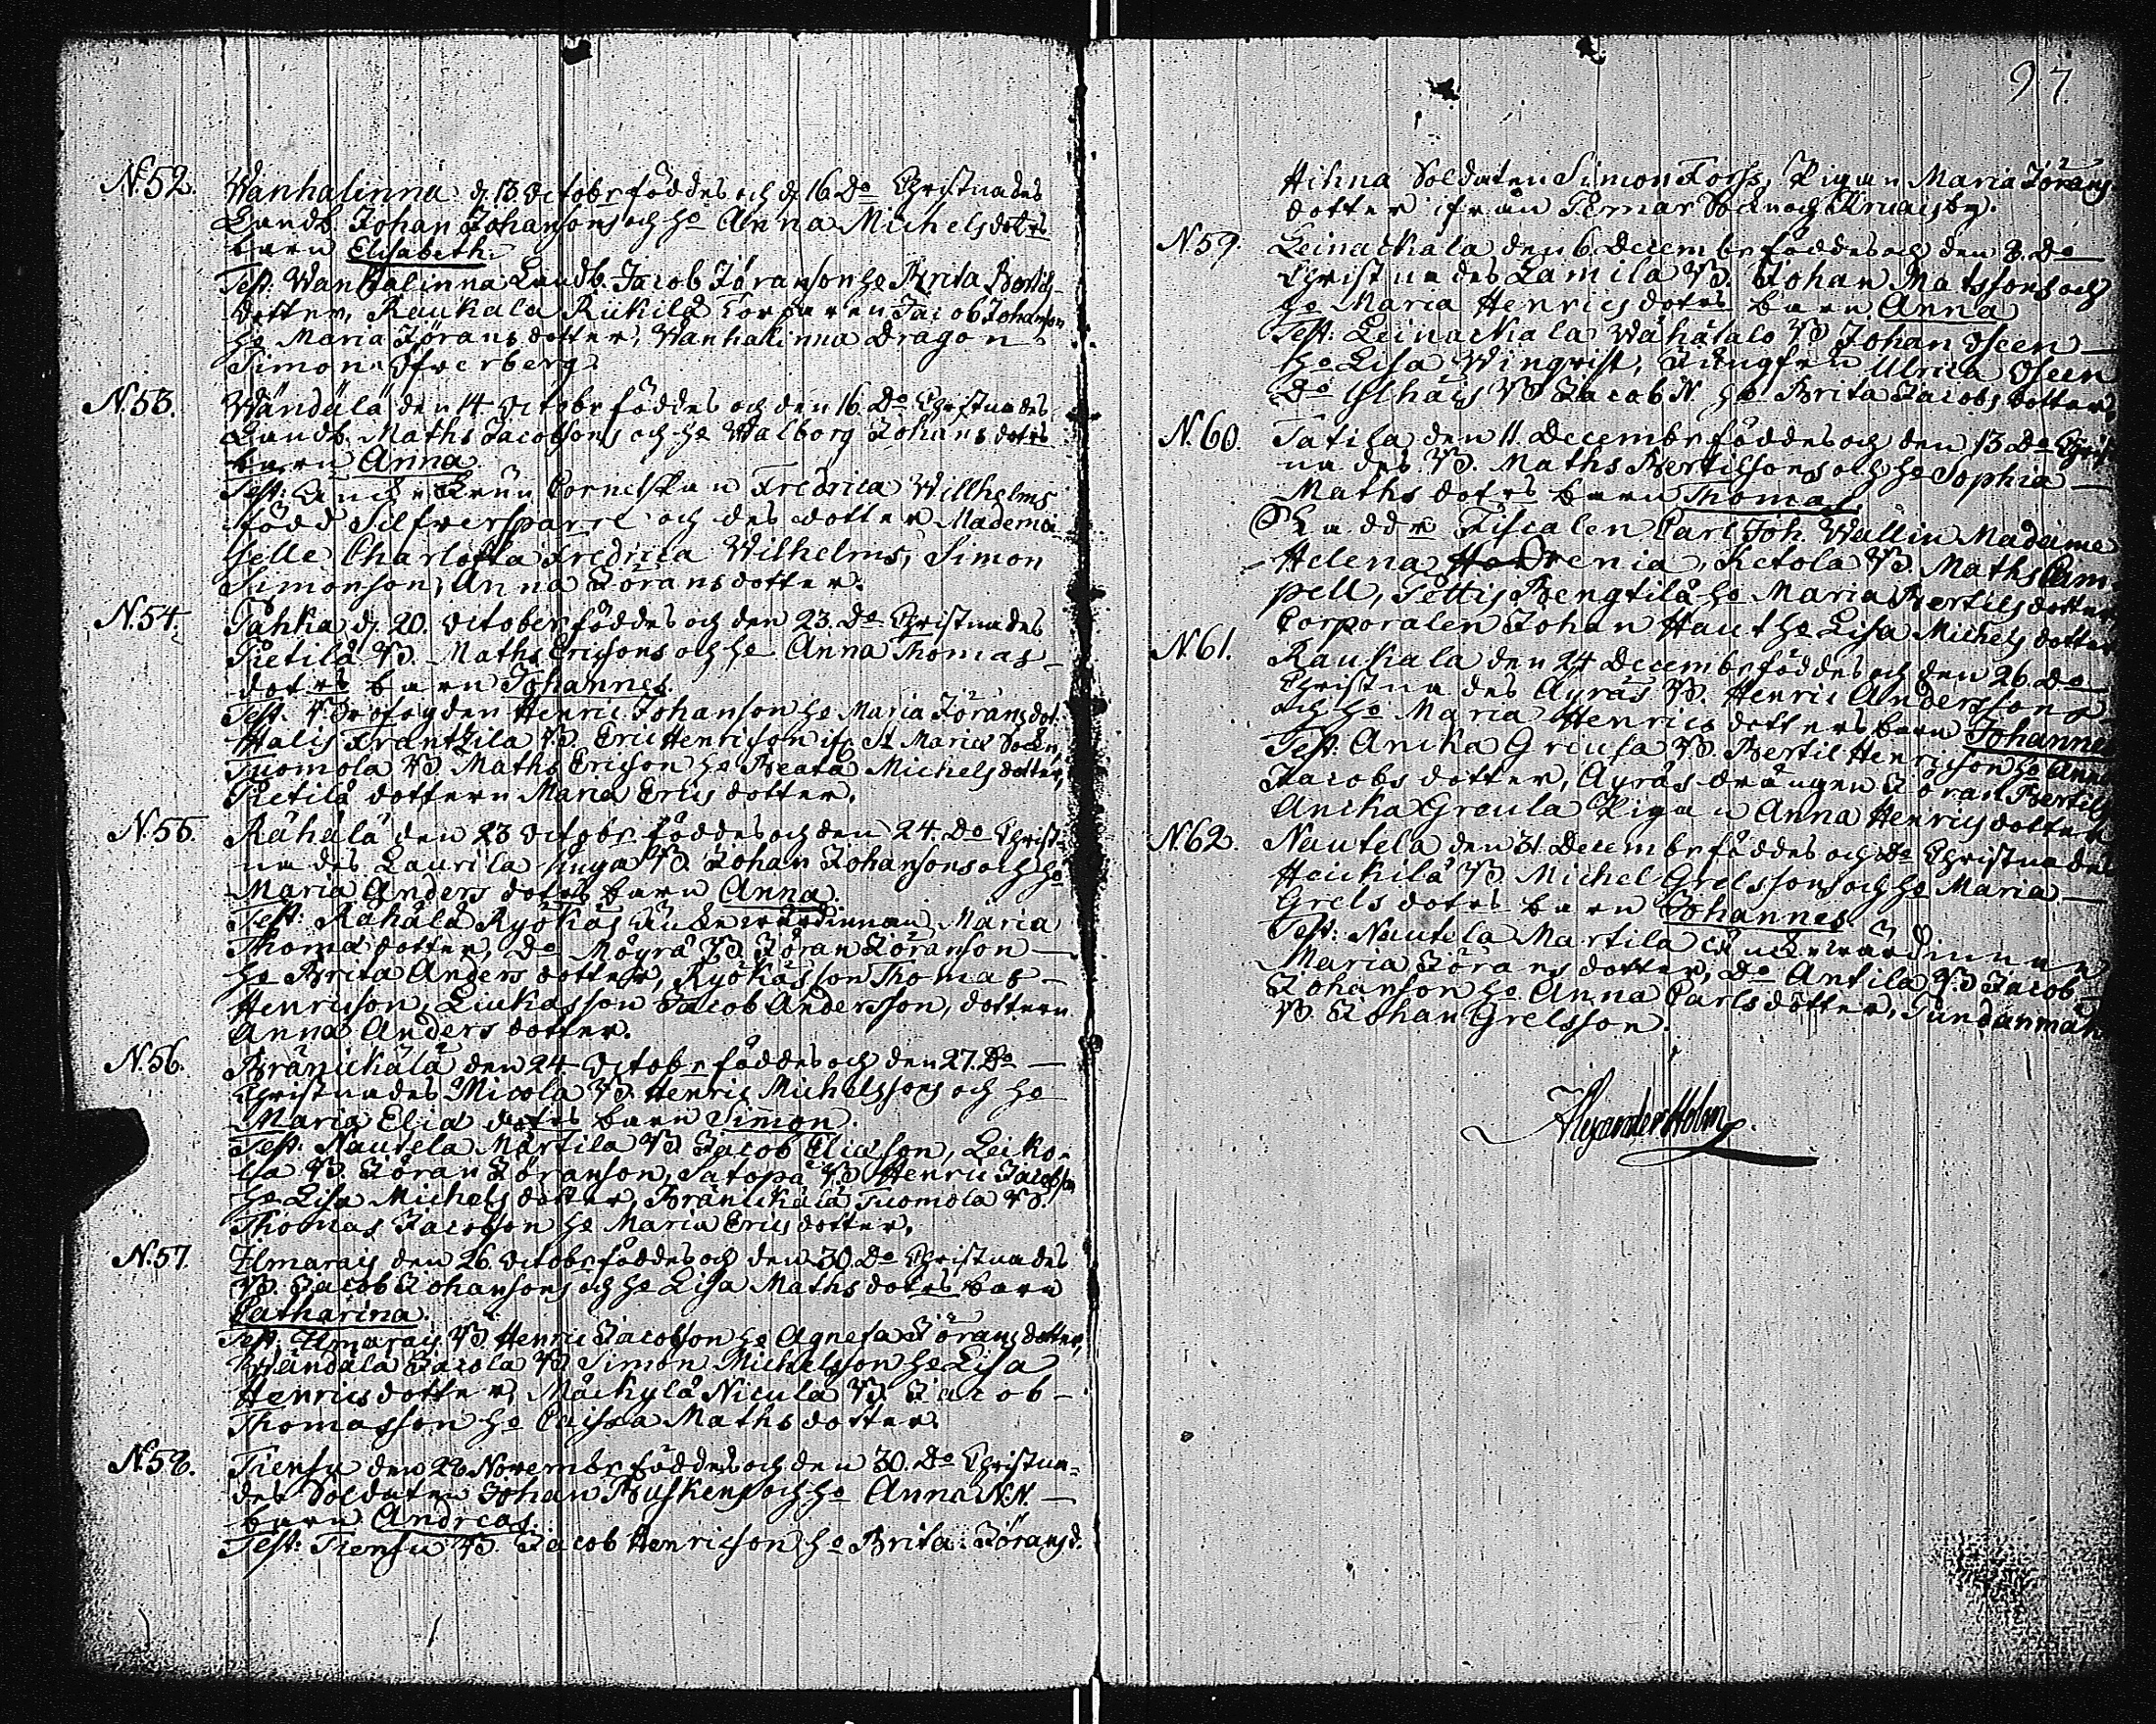 N.52. Wanhalinna d. 13 Octobr föddes och d. 16 Do Christnades
Landb. Johan Johansons och ho Anna Michelsdotrs
barn Elisabeth.
Test: Wanhalinna Landb. Jacob Jöranson ho Brita Bertils
dotter, Raukala Riikilä Torparen Jacob Johanson
ho Maria Jöransdotter, Wanhalinna Dragon
Simon Öfverberg.
N.53. Wändälä den 14 Octobr föddes och den 16 Do Christnades
Landb. Maths Jacobsons och ho Walborg Johansdotrs
barn Anna.
Test: Cornetskan Fredrica Willhelms
född Silfversparre och des dotter Mademoi
selle Charlotta Fredrica Wilhelms, Simon
Simonson, Anna Jöransdotter.
N.54. Pahka d. 20. October föddes och den 23. Do Christnades
Pietilä B. Maths Ericsons och ho Anna Thomas
dotrs barn Johannes.
Test. Profogden Henric Johanson ho Maria Jöransdot.
Halis Frantzila B. Eric Henricson if. St Mariæ Sokn,
Tuomola B Maths Ericson ho Beata Michelsdotter,
Pietilä dottern Maria Ericsdotter.
N.55. Rähälä den 23 Octobr föddes och den 24. Do Christ-
nades Laurila unga B. Johan Johansons och ho
Maria Anders dotrs barn Anna.
Test: Rähälä Ryökäs Enkevärdinnan Maria
Thomædotter, Do Möyrä B Jöran Jöranson
ho Brita Andersdotter, Ryökäs son Thomas
Henricson, Liukas son Jacob Andersson, dottern
Anna Andersdotter.
N.56. Bränickälä den 24 Octobr föddes och den 27. Do
Christnades Micola B. Henric Michelssons och ho
Maria Eliædotrs barn Simon.
Test: Nautela Martila B. Jacob Eliæson, Leiko-
la B. Jöran Jöranson, Satopä B Henric Jacobson
ho Lisa Michelsdotter, Bränickälä Tuomola B.
Thomas Jacobson ho Maria Ericsdotter.
N.57. Ilmarais den 26. Octobr föddes och den 30 Do Christnades
B. Jacob Johansons och ho Lisa Mathsdotrs barn
Catharina.
Test. Ilmarais B. Henric Jacobson ho Agneta Jöransdotter,
Wändälä Jacola B. Simon Michelsson ho Lisa
Henricsdotter, Mäckylä Nicula B. Jacob
Thomasson ho Caisa Mathsdotter.
N.58. Tiensu den 28 Novembr föddes och den 30. Do Christna-
des Soldaten Johan Buskens och ho Anna N.N.
barn Andreas.
Test: Tiensu B. Jacob Henricson ho Brita Jöransd.
97.
Hihna Soldaten Simon Forss, Pigan Maria Jörans
dotter ifrån Temar Sokn och
N.59. Leinackala den 6. Decembr föddes och den 8. Do
Christnades Lamila B. Johan Matssons och
ho Maria Henricsdotrs barn Anna
Test: Leinackala Wähätalo B Johan Oseen
ho Lisa Winqvist, Jungfru Ulrica Oseen
Do Ylhäis B Jacob N. ho Brita Jacobsdotter.
N.60. Tatila den 11 Decembr föddes och den 13 Do Christ
nades B. Maths Bertilsons och ho Sophia
Mathsdotrs barn Thomas.
Faddr Fiscalen Carl Joh. Wallin Madame
Helena Ketola B. Maths Cam-
pell, Pettis Bengtilä ho Maria Bertilsdotter
Corporalen Johan Haut ho Lisa Michelsdotter
N.61. Raukala den 24 Decembr föddes och den 26. Do
Christnades Äyräs B. Henric Anderssons
och ho Maria Henricsdotters barn Johannes
Test: Anika Greula B. Bertil Henricson ho Anna
Jacobsdotter, Äyräs drängen Jöran Bertils
Anika Greula Pigan Anna Henricsdotter
N.62. Nautela den 31. Decembr föddes och Do Christnades
Heickilä B. Michel Grelssons och ho Maria
Grelsdotrs barn Johannes.
Test: Nautela Martila Enkevärdinnan
Maria Jöransdotter, Do Antila B Jacob
Johanson ho Anna Carlsdotter,
B Johan Grelsson.
Alexander Holm